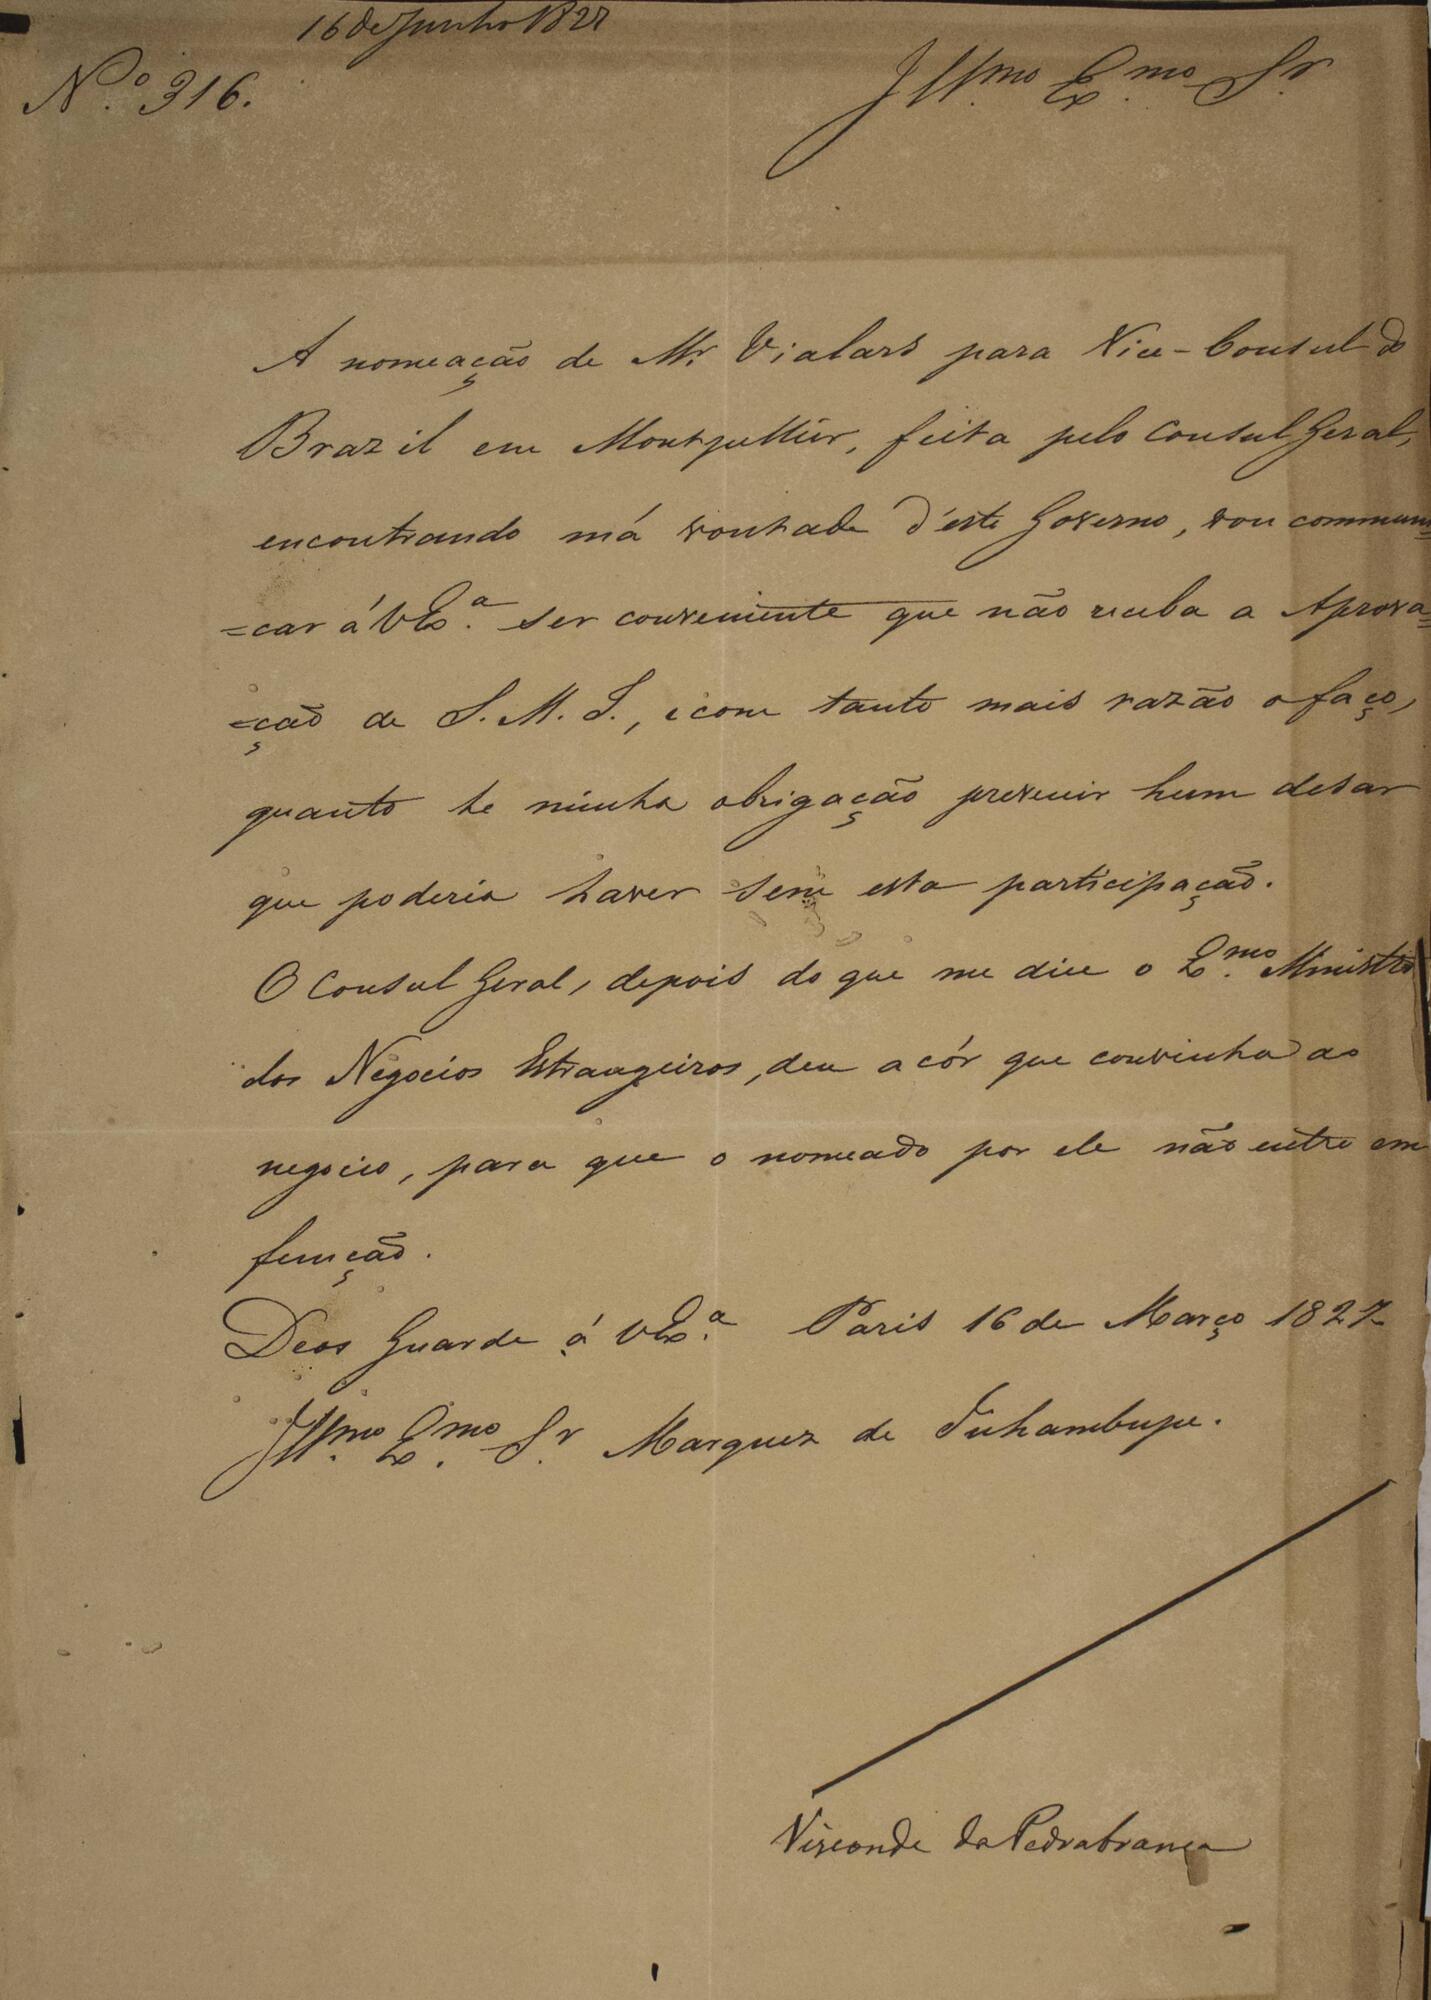 16 de Junho 1827
N.º 316.
Ill.mo Ex.mo Sr.
A nomeação de Mr. Vialars para Vice-Consul do
Brazil em Montpellier, feita pelo Consul Geral,
encontrando má vontade d'este Governo, vou communi=
=car á VEx.ª ser conveniente que não receba a Aprova=
=ção de S. M. I., e com tanto mais razão o faço,
quanto he minha obrigação prevenir hum desar
que poderia haver sem esta participação.
O Consul Geral, depois do que me dice o Ex.mo Ministro
dos Negocios Estrangeiros, deu a côr que convinha ao
negocio, para que o nomeado por ele não entre em
funcção.
Deos Guarde á VEx.ª Paris 16 de Março 1827
Ill.mo Ex.mo Sr. Marquez de Inhambupe.
Visconde da Pedrabranca